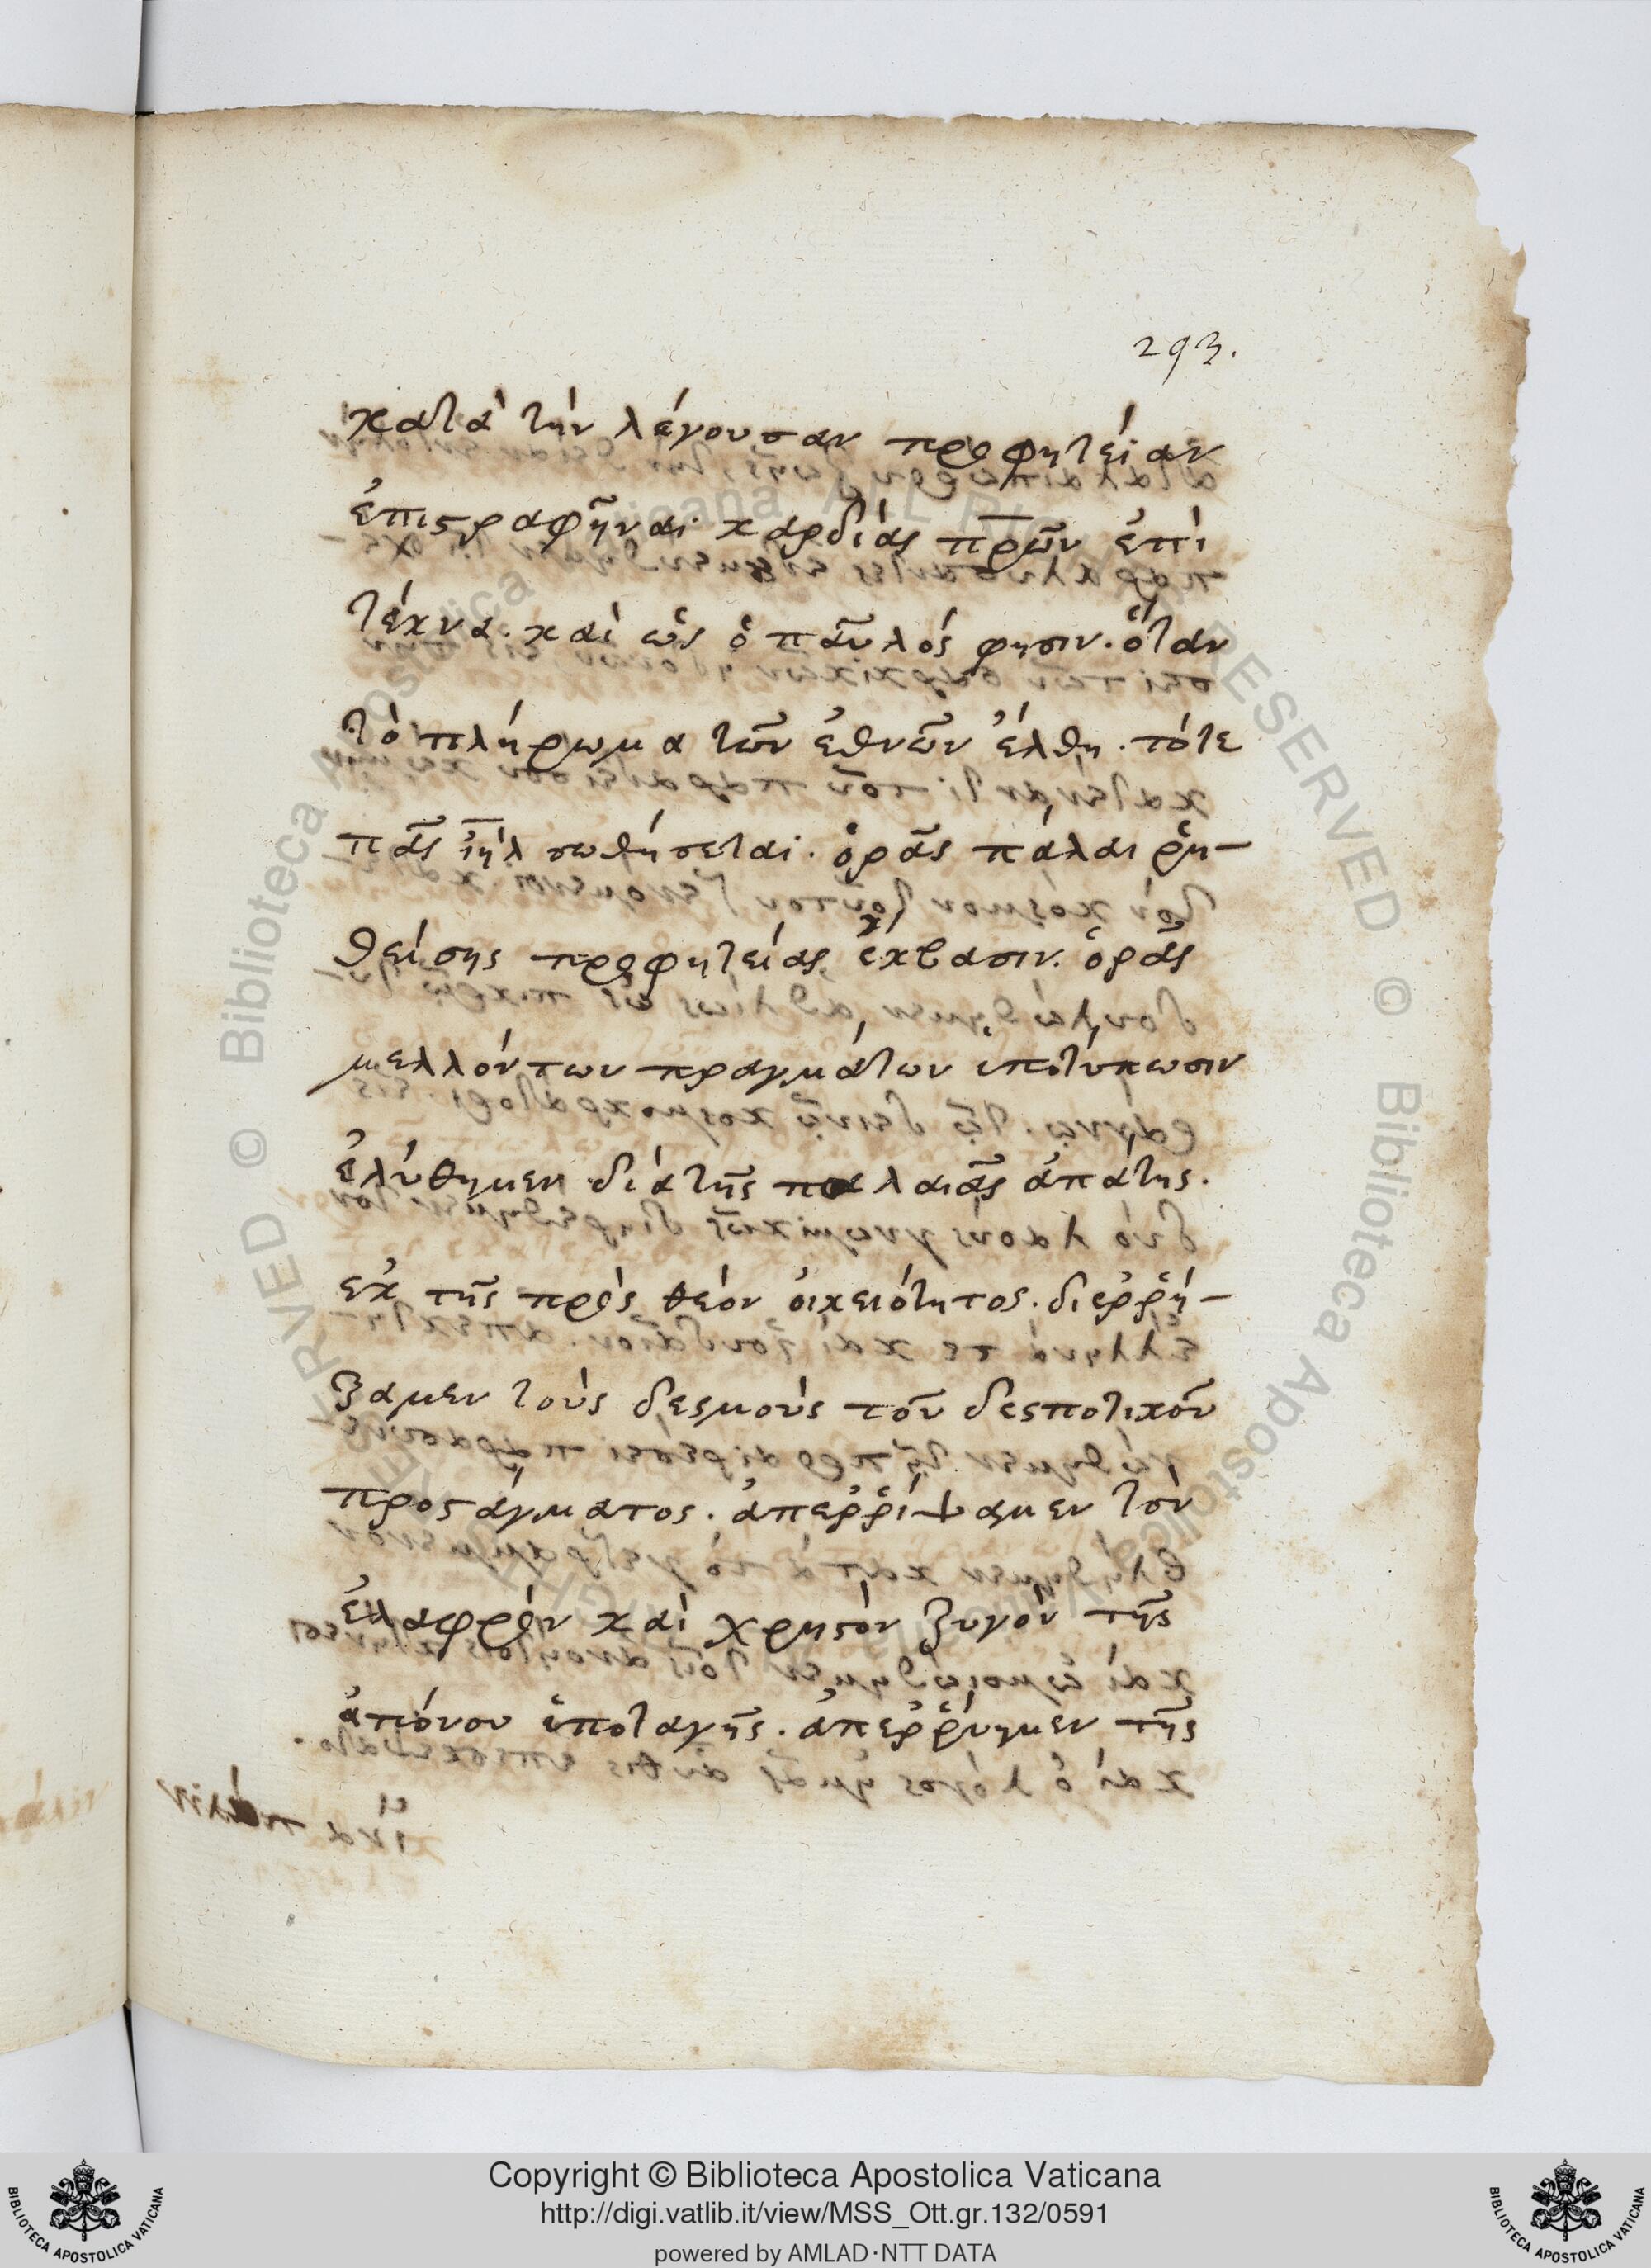 293.
κατὰ τὴν λέγουσαν προφητείαν
ἐπιστραφῆναι καρδίας π̅ρ̅ῶν ἐπὶ
τέκνα. καὶ ὡς ὁ παῦλός φησιν. ὅταν
τὸ πλήρωμα τῶν ἐθνῶν ἔλθη. τότε
πᾶς ι̅η̅λ σωθήσεται. ὁρᾶς πάλαι ῥη-
θείσης προφητείας ἔκβασιν. ὁρᾶς
μελλόντων πραγμάτων ὑποτύπωσιν
ἐλύθημεν διὰ τῆς παλαιᾶς ἀπάτης.
ἐκ τῆς πρὸς θεὸν οἰκειότητος. διεῤῥή-
ξαμεν τοὺς δεσμοὺς τοῦ δεσποτικοῦ
προστάγματος. ἀπεῤῥίψαμεν τὸν
ἐλαφρὸν καὶ χρηστὸν ζυγὸν τῆς
ἀπόνου ὑποταγῆς. ἀπεῤῥύημεν τῆς
Copyright © Biblioteca Apostolica Vaticana
http://digi.vatlib.it/view/MSS_Ott.gr.132/0591
powered by AMLAD·NTT DATA
BIBLIOTECA APOSTOLICA VATICANA
BIBLIOTECA APOSTOLICA VATICANA